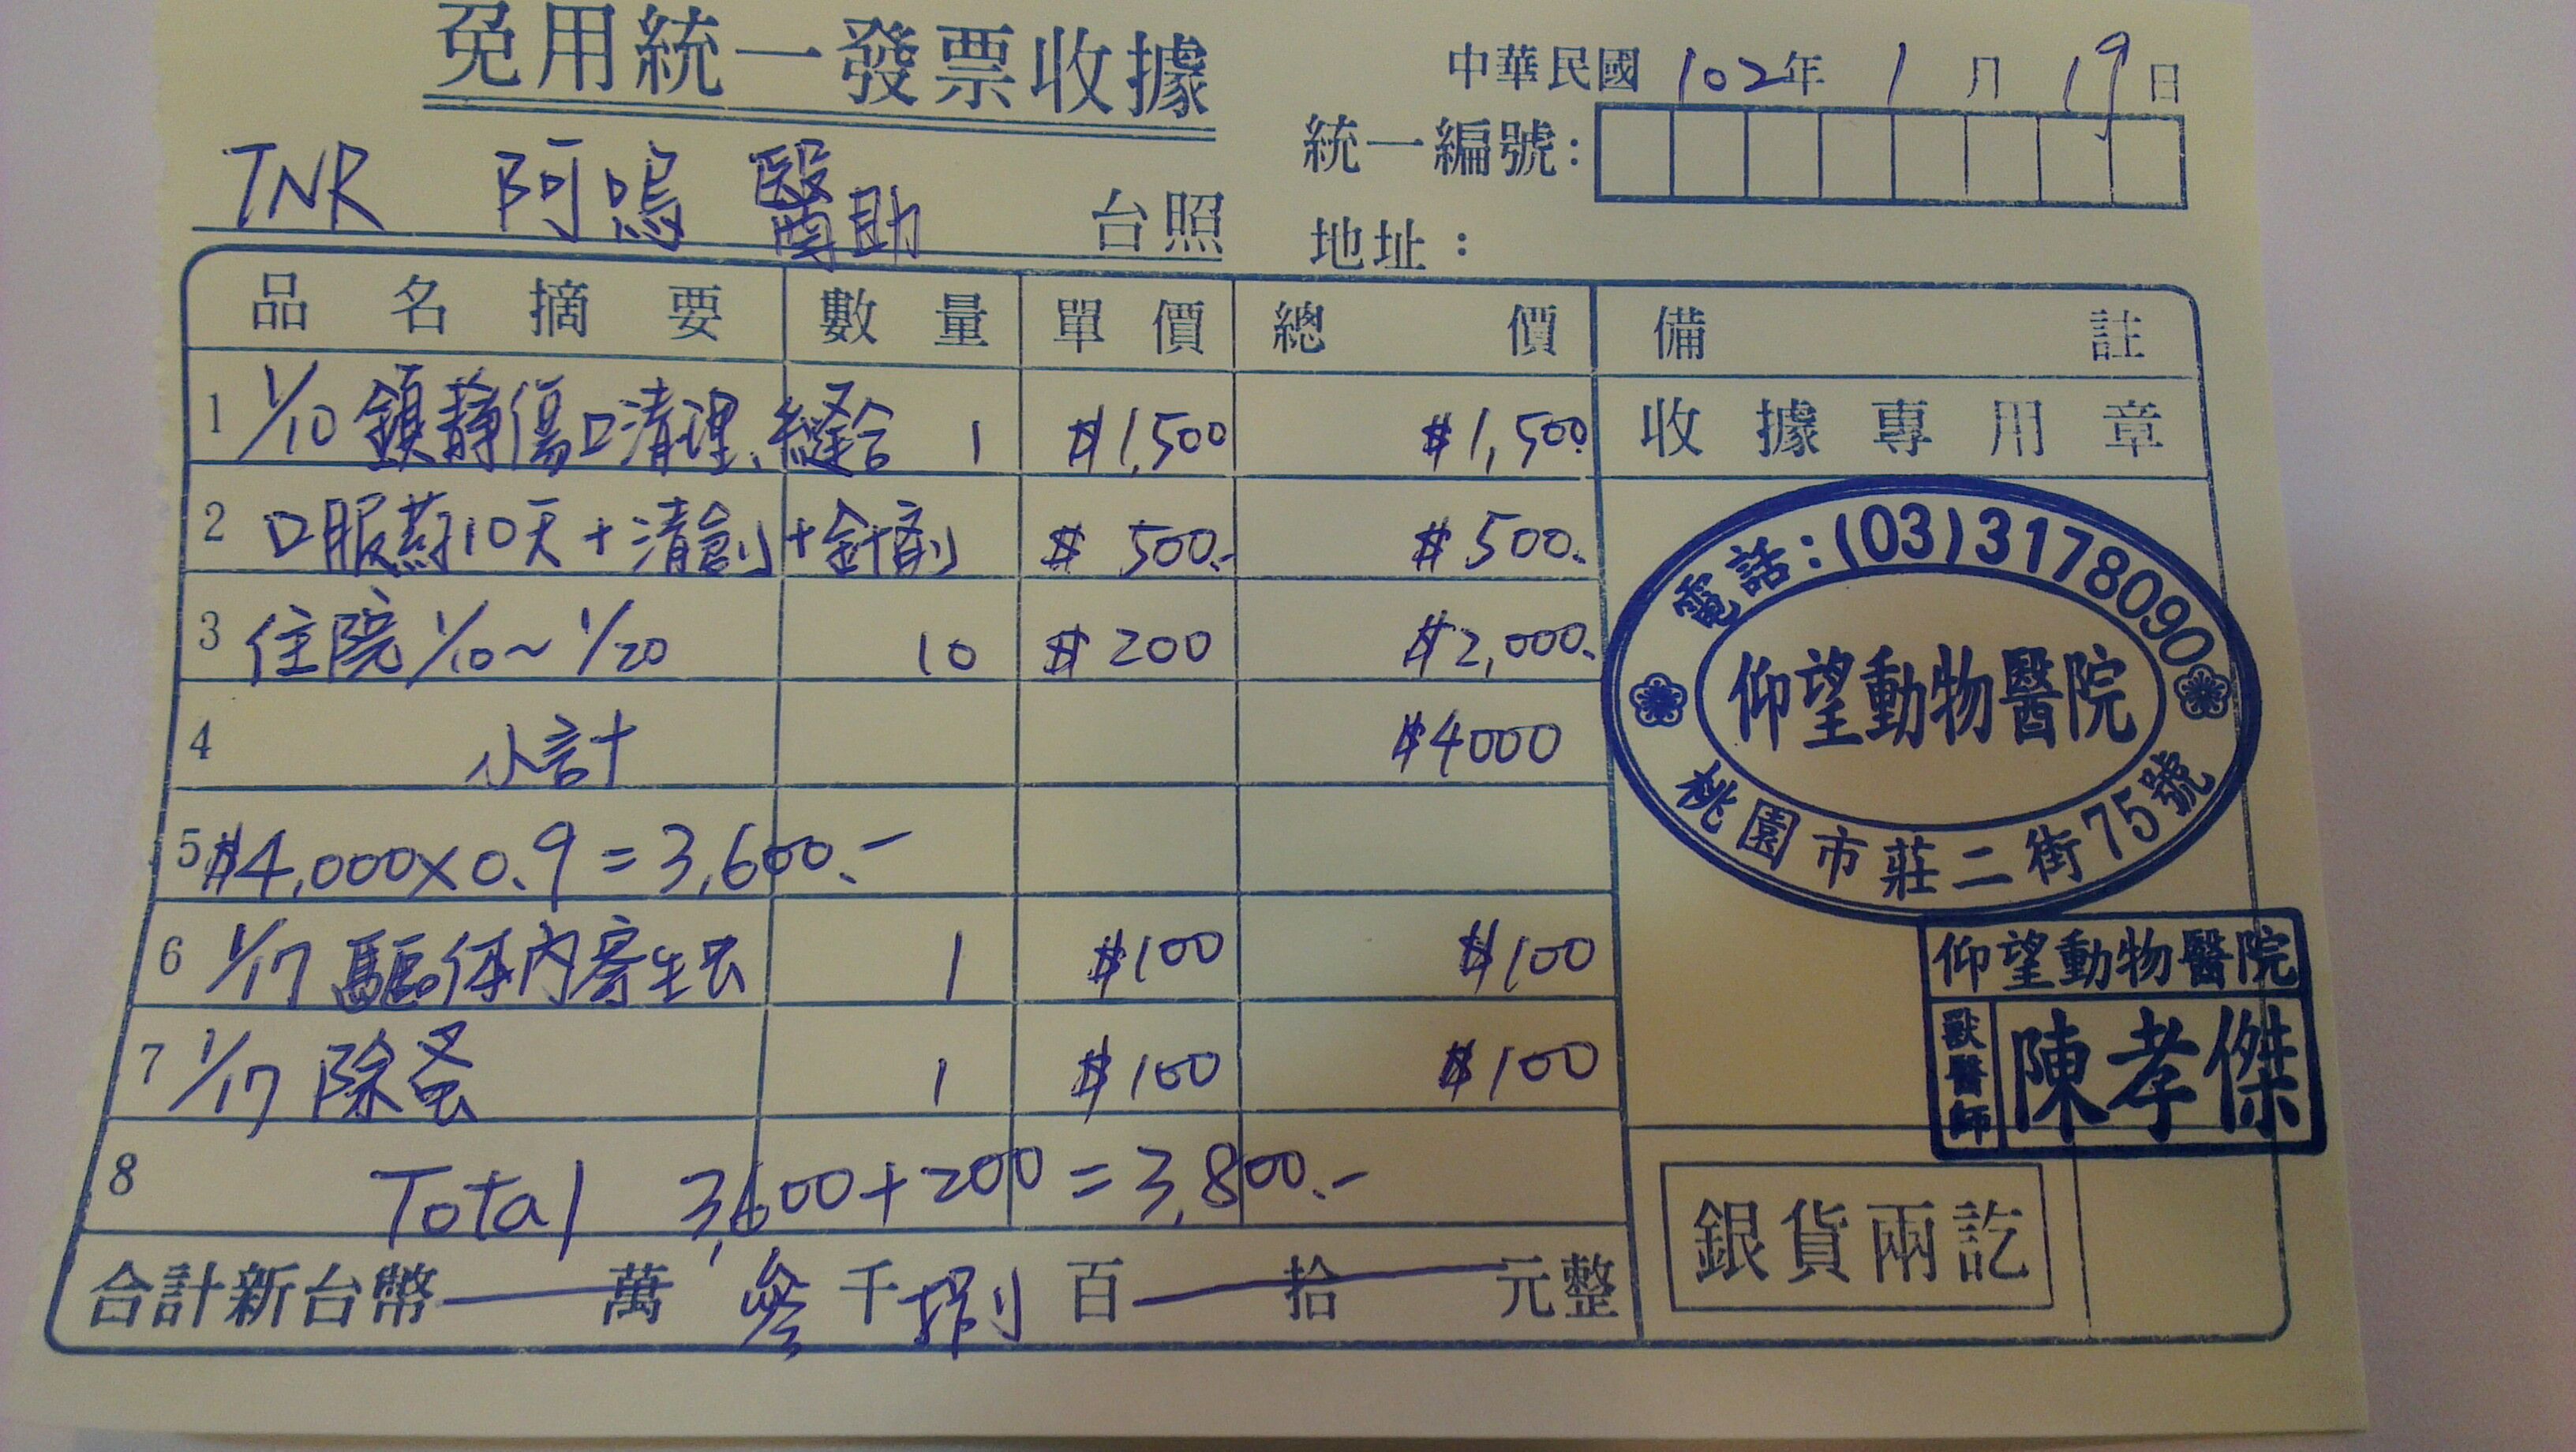 免用統一發票收據
中華民國 102年 1月 19日
統一編號:
TNR 阿嗚 醫助 台照
地址:
品名摘要 數量 單價 總價 備註
1 1/10 鎮靜傷口清理、縫合 1 $1,500 $1,500. 收據專用章
2 口服葯10天+清創+針劑 $ 500.- $ 500.
3 住院 1/10~1/20 10 $ 200 $2,000.
4 小計 $4000
5 $4,000×0.9=3,600.-
6 1/17 驅体內寄生虫 1 $100 $100
7 1/17 除蚤 1 $100 $100
8 Total 3,600+200=3,800.-
合計新台幣 萬 參千捌百 拾 元整
電話:(03)3178090
仰望動物醫院
桃園市莊二街75號
仰望動物醫院
獸醫師 陳孝傑
銀貨兩訖